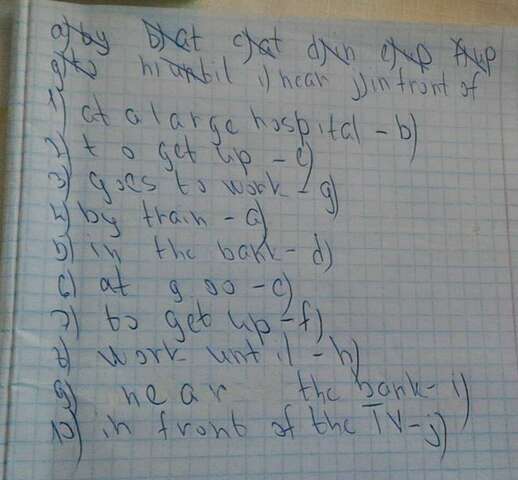 a) by b) at c) at d) in e) up f) up
g) to h) until i) near j) in front of
1) at a large hospital - b)
2) to get up - e)
3) goes to work - g)
4) by train - a)
5) in the bank - d)
6) at 9 00 - c)
7) to get up - f)
8) work until - h)
9) near the bank - i)
10) in front of the TV - j)